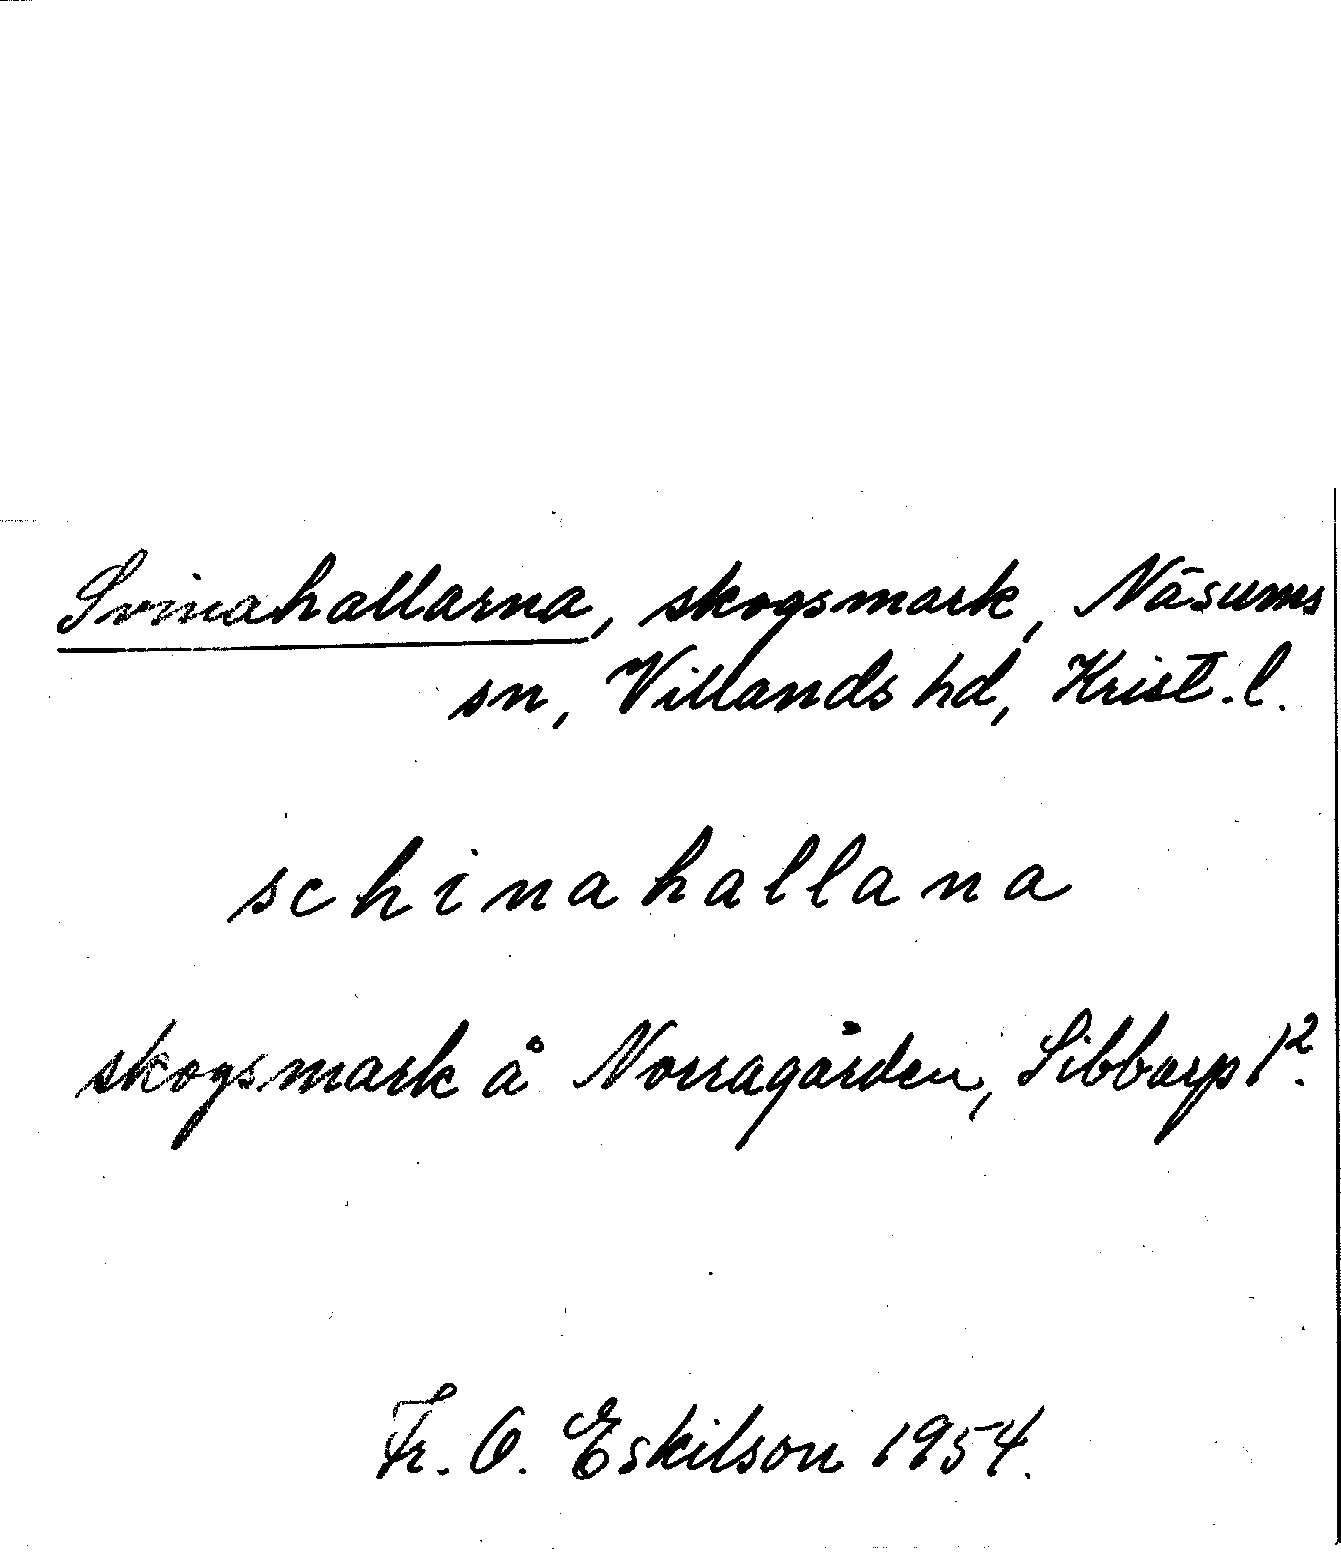 Svinahallarna, skogsmark, Näsums
sn, Villands hd, Krist. l.
schinahallana
skogsmark å Norragården, Sibbarp 1².
Fr. O. Eskilson 1954.